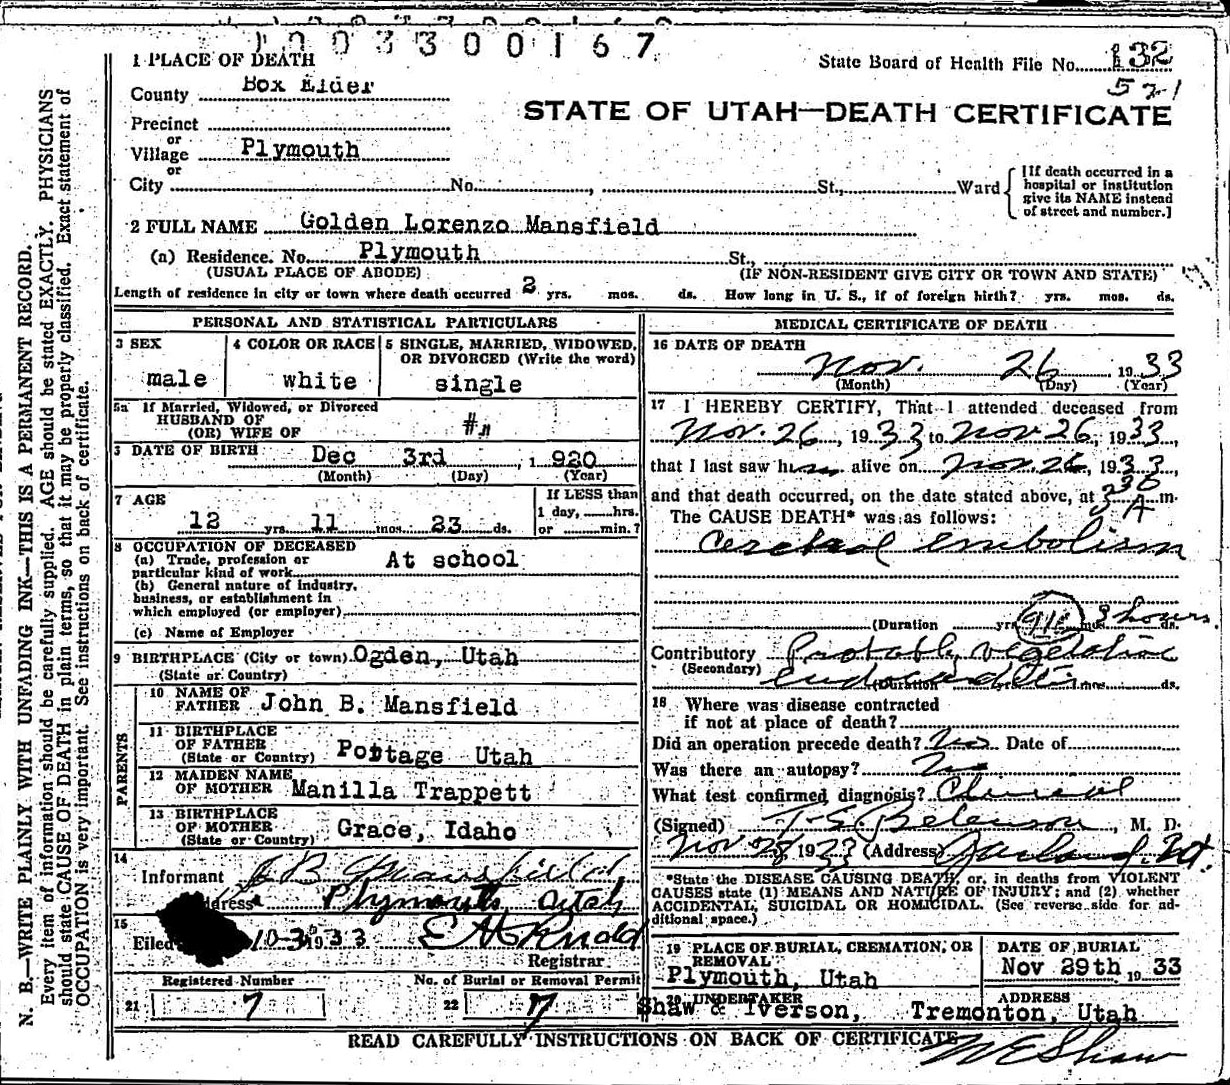 1003300167
1 PLACE OF DEATH
State Board of Health File No. 132
County Box Elder
521
STATE OF UTAH—DEATH CERTIFICATE
Precinct
or
Village Plymouth
or
City No. , St., Ward
[If death occurred in a
hospital or institution
give its NAME instead
of street and number.]
2 FULL NAME Golden Lorenzo Mansfield
(a) Residence. No. Plymouth St.,
(USUAL PLACE OF ABODE) (IF NON-RESIDENT GIVE CITY OR TOWN AND STATE)
Length of residence in city or town where death occurred 2 yrs. mos. ds. How long in U. S., if of foreign birth? yrs. mos. ds.
PERSONAL AND STATISTICAL PARTICULARS
3 SEX
male
4 COLOR OR RACE
white
5 SINGLE, MARRIED, WIDOWED,
OR DIVORCED (Write the word)
single
5a If Married, Widowed, or Divorced
HUSBAND OF
(OR) WIFE OF
DATE OF BIRTH Dec 3rd , 1 920
(Month) (Day) (Year)
7 AGE
12 yrs. 11 mos. 23 ds.
If LESS than
1 day, hrs.
or min.?
8 OCCUPATION OF DECEASED
(a) Trade, profession or
particular kind of work At school
(b) General nature of industry,
business, or establishment in
which employed (or employer)
(c) Name of Employer
9 BIRTHPLACE (City or town) Ogden, Utah
(State or Country)
PARENTS
10 NAME OF
FATHER John B. Mansfield
11 BIRTHPLACE
OF FATHER
(State or Country) Pottage Utah
12 MAIDEN NAME
OF MOTHER Manilla Trappett
13 BIRTHPLACE
OF MOTHER
(State or Country) Grace, Idaho
14
Informant J B Mansfield
Plymouth Utah
15
Filed 33
Registrar
Registered Number
21 7
No. of Burial or Removal Permit
22 7
MEDICAL CERTIFICATE OF DEATH
16 DATE OF DEATH
Nov. 26 1933
(Month) (Day) (Year)
17 I HEREBY CERTIFY, That I attended deceased from
Nov. 26, 1933 to Nov 26, 1933,
that I last saw him alive on Nov. 26, 1933,
and that death occurred, on the date stated above, at A m.
The CAUSE DEATH* was as follows:
Cerebral embolism
(Duration yrs. mos. 3 hours. ds.
Contributory Probable vegetative
(Secondary) endocarditis
(Duration yrs. mos. ds.
18 Where was disease contracted
if not at place of death?
Did an operation precede death? No Date of
Was there an autopsy? No
What test confirmed diagnosis? Clinical
(Signed) , M. D.
Nov 28, 1933 (Address) Garland, Ut.
*State the DISEASE CAUSING DEATH, or, in deaths from VIOLENT
CAUSES state (1) MEANS AND NATURE OF INJURY; and (2) whether
ACCIDENTAL, SUICIDAL OR HOMICIDAL. (See reverse side for ad-
ditional space.)
19 PLACE OF BURIAL, CREMATION, OR
REMOVAL
Plymouth, Utah
DATE OF BURIAL
Nov 29th 1933
20 UNDERTAKER
Shaw & Iverson,
ADDRESS
Tremonton, Utah
READ CAREFULLY INSTRUCTIONS ON BACK OF CERTIFICATE
W E Shaw
N. B.—WRITE PLAINLY WITH UNFADING INK—THIS IS A PERMANENT RECORD.
Every item of information should be carefully supplied. AGE should be stated EXACTLY. PHYSICIANS
should state CAUSE OF DEATH in plain terms, so that it may be properly classified. Exact statement of
OCCUPATION is very important. See instructions on back of certificate.